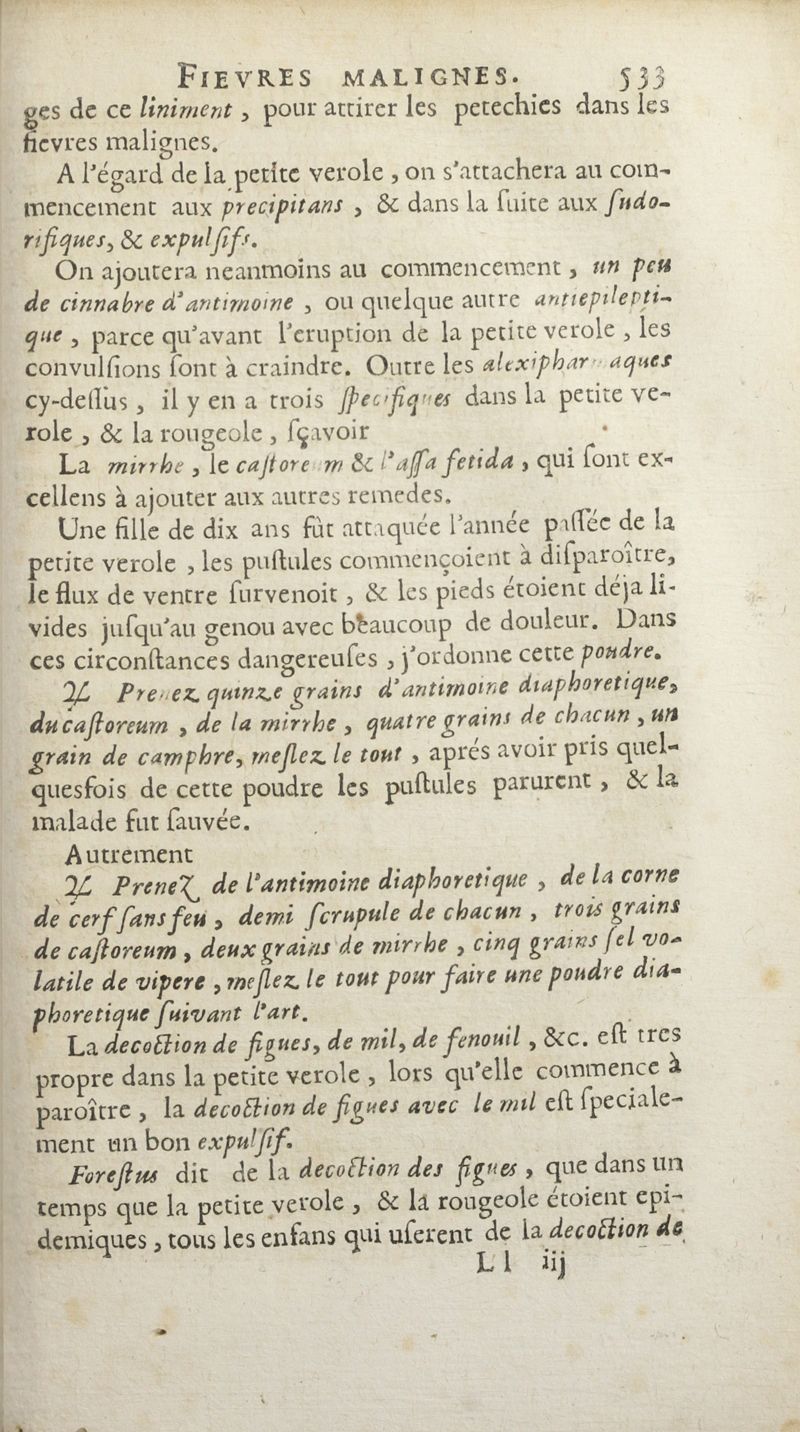 FIEVRES MALIGNES. 533
ges de ce liniment, pour attirer les petechies dans les
fievres malignes.
A l'égard de la petite verole, on s'attachera au com-
mencement aux precipitans, & dans la ſuite aux ſudo-
rifiques, & expulſifs.
On ajoutera neanmoins au commencement, un peu
de cinnabre d'antimoine, ou quelque autre antiepilepti-
que, parce qu'avant l'eruption de la petite verole, les
convulſions ſont à craindre. Outre les alexipharmaques
cy-deſſus, il y en a trois ſpecifiques dans la petite ve-
role, & la rougeole, ſçavoir
La mirrhe, le caſtoreum & l'aſſa fetida, qui ſont ex-
cellens à ajouter aux autres remedes.
Une fille de dix ans fût attaquée l'année paſſée de la
petite verole, les puſtules commençoient à diſparoître,
le flux de ventre ſurvenoit, & les pieds étoient déja li-
vides juſqu'au genou avec beaucoup de douleur. Dans
ces circonſtances dangereuſes, j'ordonne cette poudre.
♃ Prenez quinze grains d'antimoine diaphoretique,
du caſtoreum, de la mirrhe, quatre grains de chacun, un
grain de camphre, meſlez le tout, aprés avoir pris quel-
quesfois de cette poudre les puſtules parurent, & la
malade fut ſauvée.
Autrement
♃ Prenez de l'antimoine diaphoretique, de la corne
de cerf ſans feu, demi ſcrupule de chacun, trois grains
de caſtoreum, deux grains de mirrhe, cinq grains ſel vo-
latile de vipere, meſlez le tout pour faire une poudre dia-
phoretique ſuivant l'art.
La decoction de figues, de mil, de fenouil, &c. eſt tres
propre dans la petite verole, lors qu'elle commence à
paroître, la decoction de figues avec le mil eſt ſpeciale-
ment un bon expulſif.
Foreſtus dit de la decoction des figues, que dans un
temps que la petite verole, & la rougeole étoient epi-
demiques, tous les enfans qui uſerent de la decoction de
Ll iij